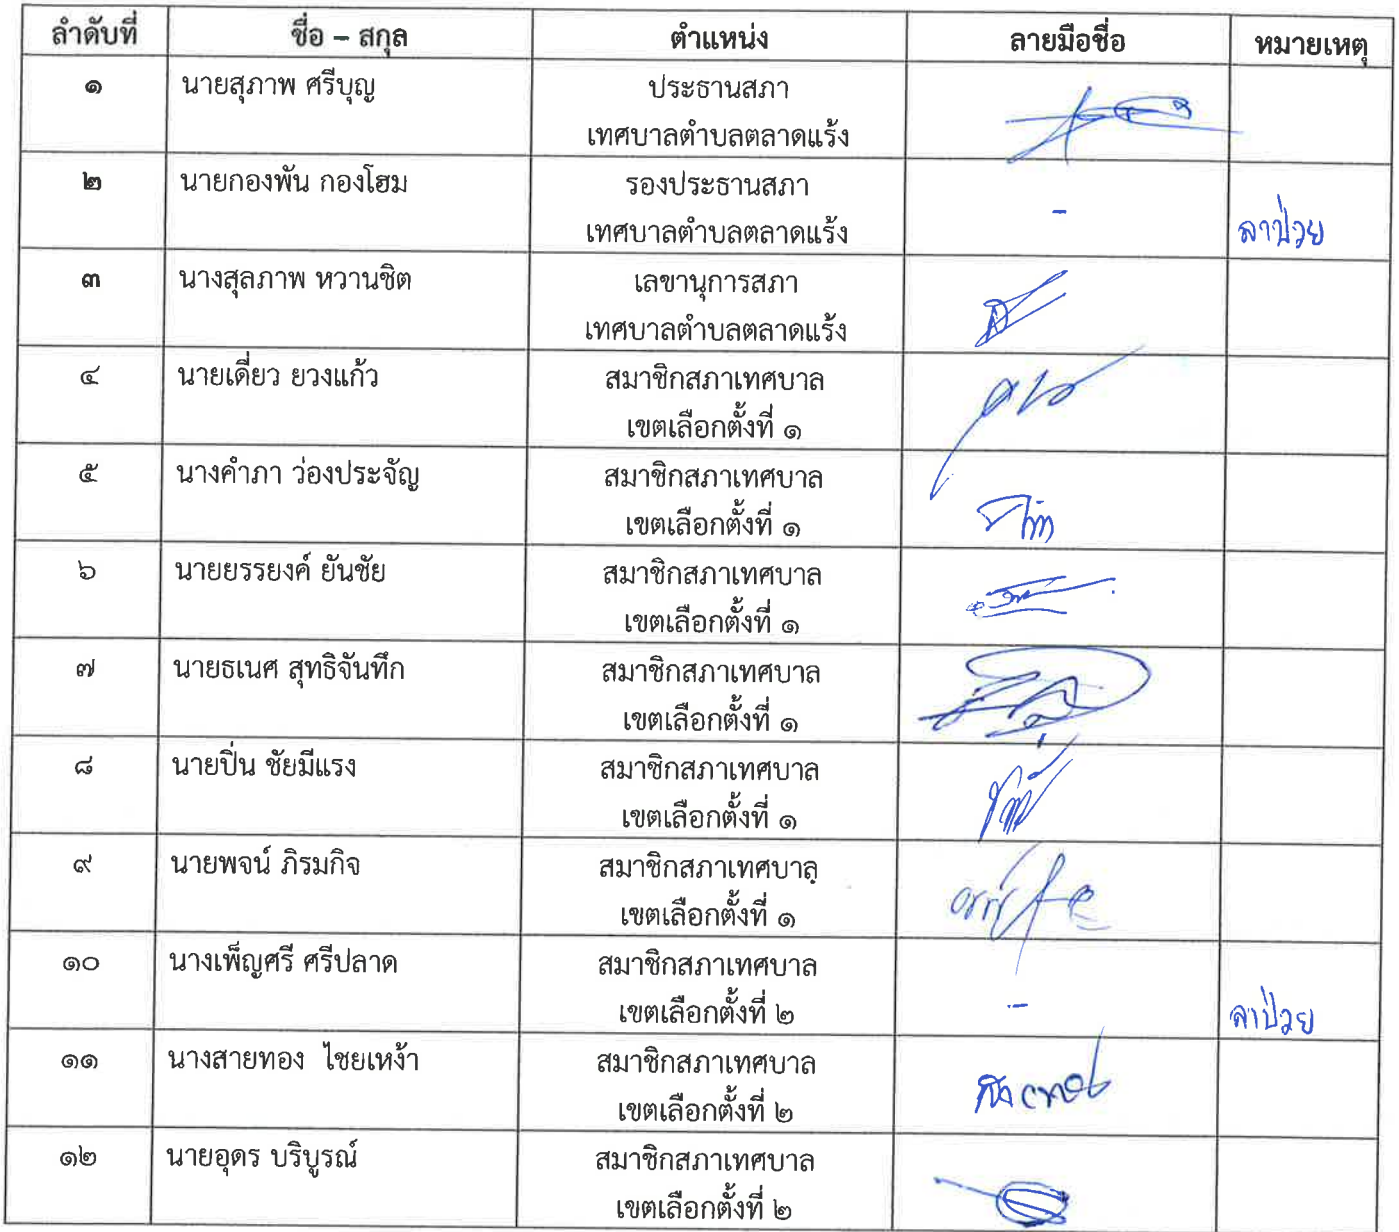 ลำดับที่ ชื่อ – สกุล ตำแหน่ง ลายมือชื่อ หมายเหตุ
๑ นายสุภาพ ศรีบุญ ประธานสภา
เทศบาลตำบลตลาดแร้ง
๒ นายกองพัน กองโฮม รองประธานสภา
เทศบาลตำบลตลาดแร้ง - ลาป่วย
๓ นางสุลภาพ หวานชิต เลขานุการสภา
เทศบาลตำบลตลาดแร้ง
๔ นายเดี่ยว ยวงแก้ว สมาชิกสภาเทศบาล
เขตเลือกตั้งที่ ๑
๕ นางคำภา ว่องประจัญ สมาชิกสภาเทศบาล
เขตเลือกตั้งที่ ๑
๖ นายยรรยงค์ ยันชัย สมาชิกสภาเทศบาล
เขตเลือกตั้งที่ ๑
๗ นายธเนศ สุทธิจันทึก สมาชิกสภาเทศบาล
เขตเลือกตั้งที่ ๑
๘ นายปิ่น ชัยมีแรง สมาชิกสภาเทศบาล
เขตเลือกตั้งที่ ๑
๙ นายพจน์ ภิรมกิจ สมาชิกสภาเทศบาล
เขตเลือกตั้งที่ ๑
๑๐ นางเพ็ญศรี ศรีปลาด สมาชิกสภาเทศบาล
เขตเลือกตั้งที่ ๒ - ลาป่วย
๑๑ นางสายทอง ไชยเหง้า สมาชิกสภาเทศบาล
เขตเลือกตั้งที่ ๒
๑๒ นายอุดร บริบูรณ์ สมาชิกสภาเทศบาล
เขตเลือกตั้งที่ ๒